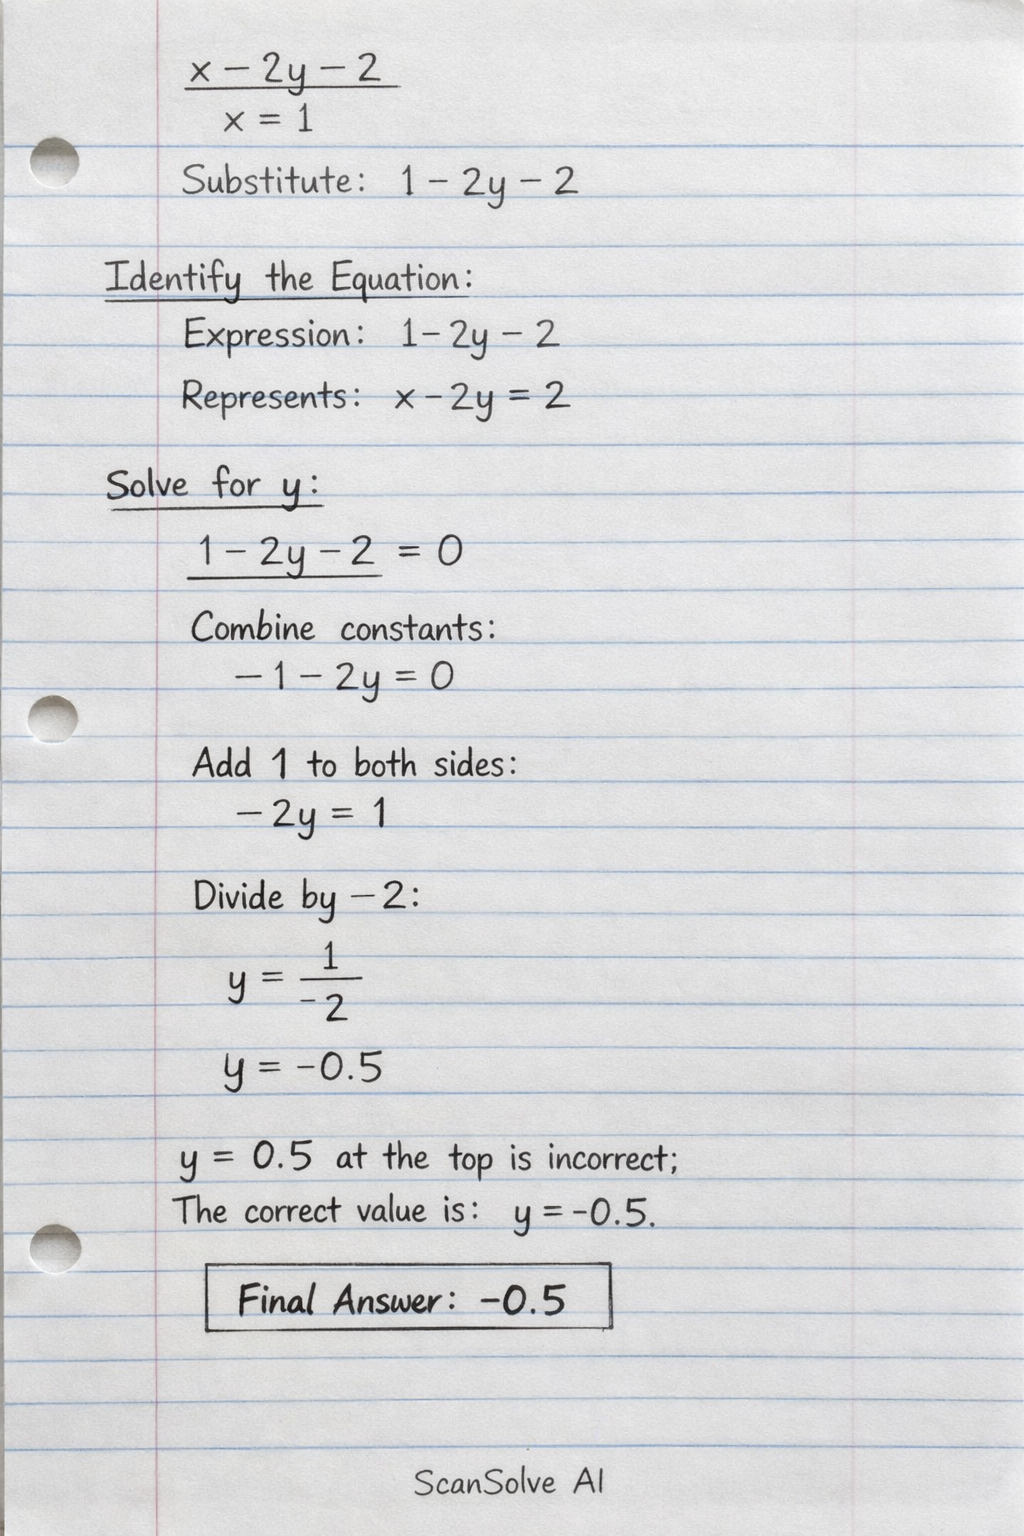 x − 2y − 2
x = 1
Substitute: 1 − 2y − 2
Identify the Equation:
Expression: 1 − 2y − 2
Represents: x − 2y = 2
Solve for y:
1 − 2y − 2 = 0
Combine constants:
−1 − 2y = 0
Add 1 to both sides:
−2y = 1
Divide by −2:
y = 1/-2
y = -0.5
y = 0.5 at the top is incorrect;
The correct value is: y = -0.5.
Final Answer: -0.5
ScanSolve AI